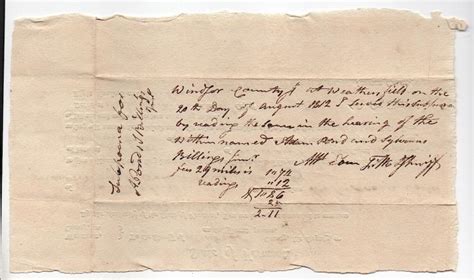 Subpoena for
Bond & Billings
Windsor County ss At Weathersfield on the
20th Day of August 1812 I served this subpoena
by reading the same in the hearing of the
within named Bond and Sylvanus
Billings
fees 24 miles is 1"74
reading "12
1"86
25
2-11